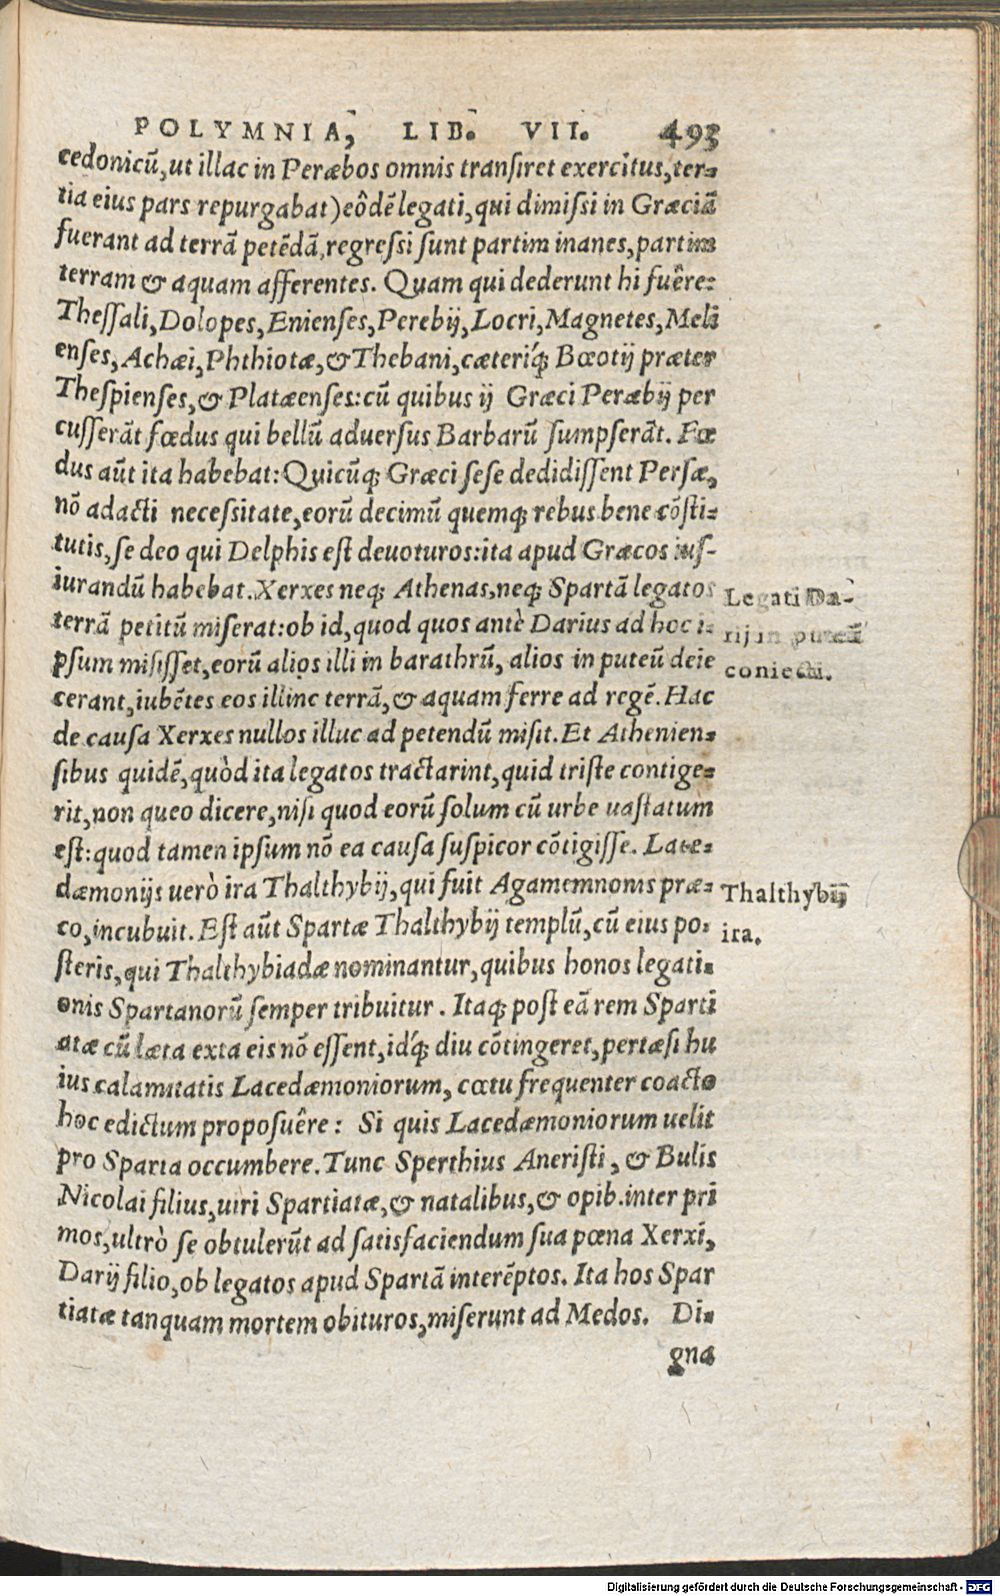 POLYMNIA, LIB. VII. 493
cedonicũ, ut illac in Peræbos omnis transiret exercitus, ter-
tia eius pars repurgabat) eôdẽ legati, qui dimissi in Græciã
fuerant ad terrã petẽdã, regressi sunt partim inanes, partim
terram & aquam afferentes. Quam qui dederunt hi fuêre:
Thessali, Dolopes, Enienses, Perebij, Locri, Magnetes, Meli
enses, Achæi, Phthiotæ, & Thebani, cæteriq́; Bœotij præter
Thespienses, & Platæenses: cũ quibus ij Græci Peræbij per
cusserãt fœdus qui bellũ aduersus Barbarũ sumpserãt. Fœ
dus aũt ita habebat: Quicũq; Græci sese dedidissent Persæ,
nõ adacti necessitate, eorũ decimũ quemq; rebus bene cõsti-
tutis, se deo qui Delphis est deuoturos: ita apud Græcos ius-
iurandũ habebat. Xerxes neq; Athenas, neq; Spartã legatos
terrã petitũ miserat: ob id, quod quos antè Darius ad hoc i-
psum misisset, eorũ alios illi in barathrũ, alios in puteũ deie
cerant, iubẽtes eos illinc terrã, & aquam ferre ad regẽ. Hac
de causa Xerxes nullos illuc ad petendũ misit. Et Athenien-
sibus quidẽ, quòd ita legatos tractarint, quid triste contige-
rit, non queo dicere, nisi quod eorũ solum cũ urbe uastatum
est: quod tamen ipsum nõ ea causa suspicor cõtigisse. Lace-
dæmonijs uerò ira Thalthybij, qui fuit Agamemnonis præ-
co, incubuit. Est aũt Spartæ Thalthybij templũ, cũ eius po-
steris, qui Thalthybiadæ nominantur, quibus honos legati-
onis Spartanorũ semper tribuitur. Itaq; post eã rem Sparti
atæ cũ læta exta eis nõ essent, idq́; diu cõtingeret, pertæsi hu
ius calamitatis Lacedæmoniorum, cœtu frequenter coacto
hoc edictum proposuêre: Si quis Lacedæmoniorum uelit
pro Sparta occumbere. Tunc Sperthius Aneristi, & Bulis
Nicolai filius, uiri Spartiatæ, & natalibus, & opib. inter pri
mos, ultrò se obtulerũt ad satisfaciendum sua pœna Xerxi,
Darij filio, ob legatos apud Spartã interẽptos. Ita hos Spar
tiatæ tanquam mortem obituros, miserunt ad Medos. Di-
gna
Legati Da-
rij in puteũ
coniecti.
Thalthybij
ira.
Digitalisierung gefördert durch die Deutsche Forschungsgemeinschaft - DFG